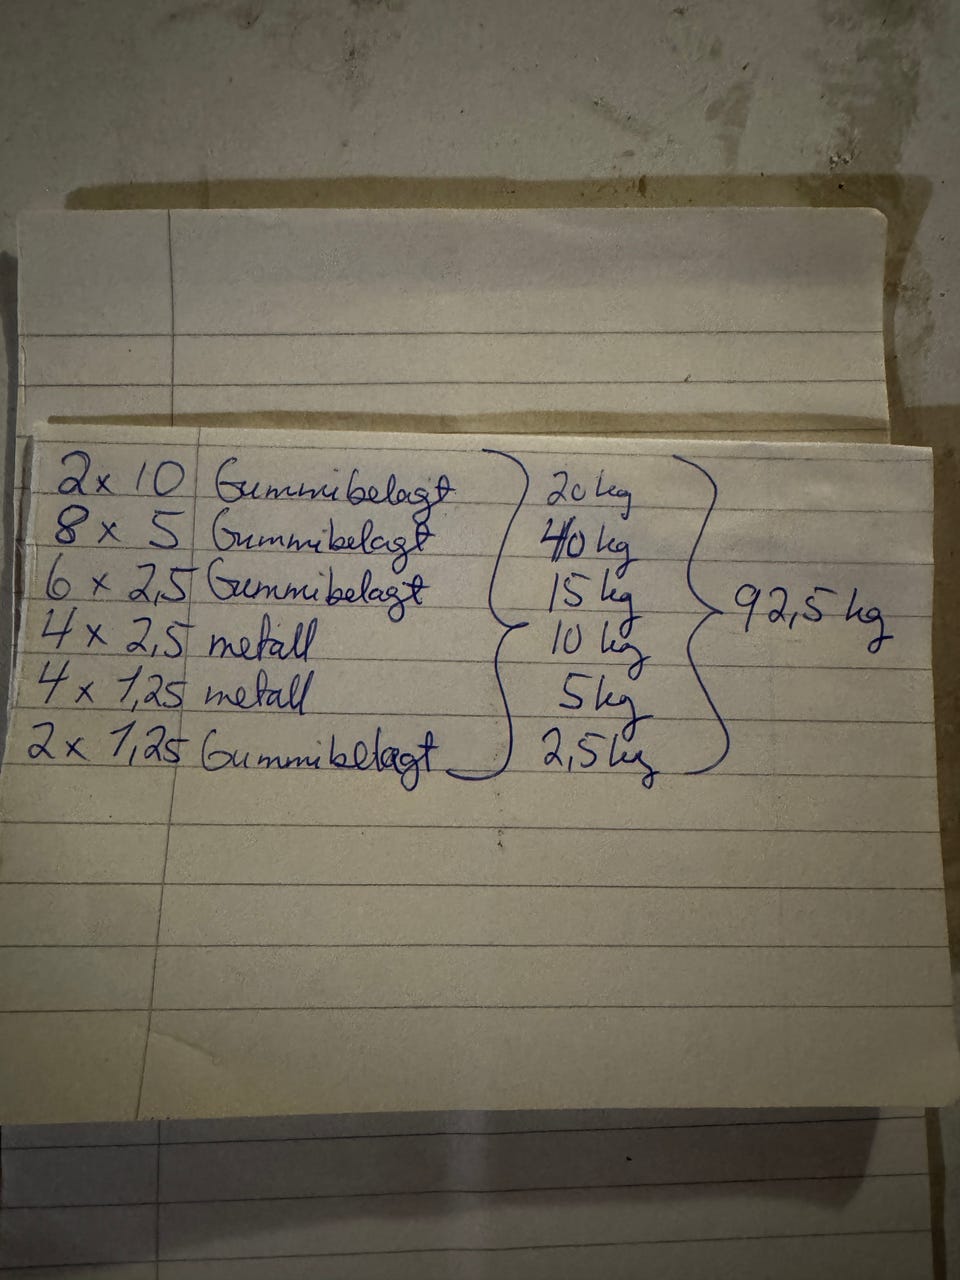 2 x 10 Gummibelagt 20 kg
8 x 5 Gummibelagt 40 kg
6 x 2,5 Gummibelagt 15 kg
92,5 kg
4 x 2,5 metall 10 kg
4 x 1,25 metall 5 kg
2 x 1,25 Gummibelagt 2,5 kg